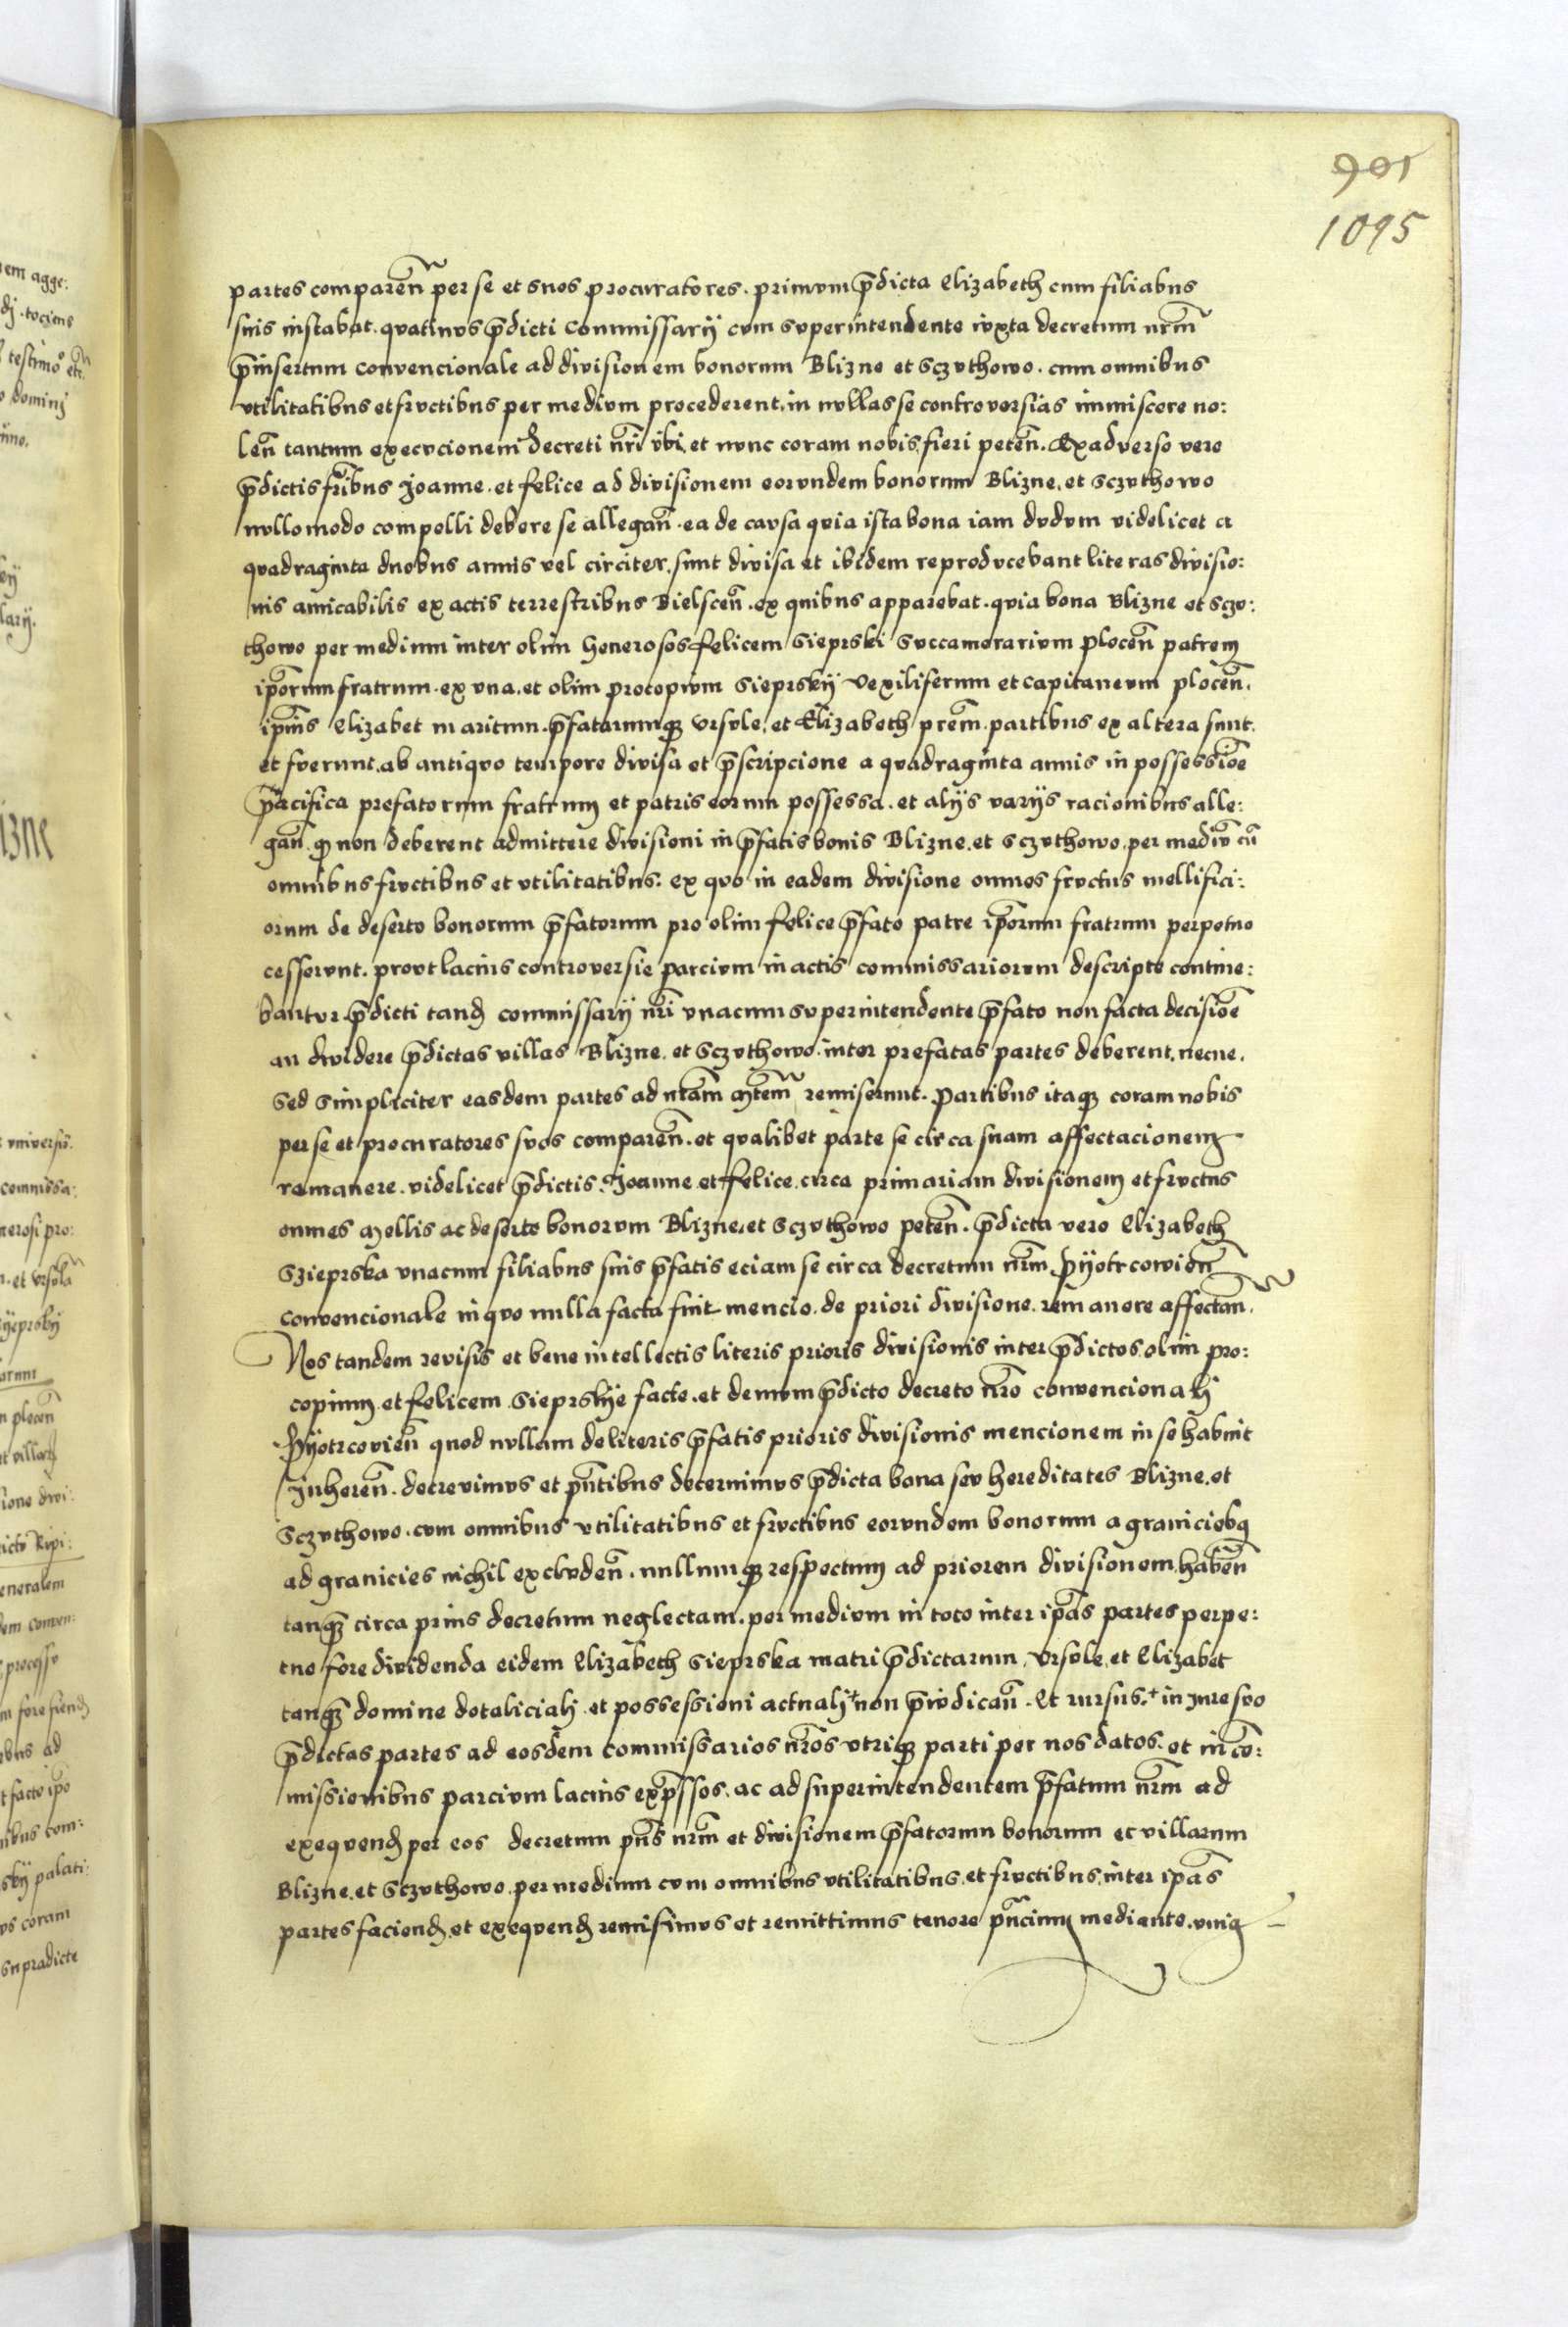 901
1095
partes comparen̄ per se et suos procuratores. primum p̄dicta Elizabeth cum filiabus
suis instabat. quatinus p̄dicti Commissarij cum superintendente iuxta decretum nrm̄
p̄insertum convencionale ad divisionem bonorum Blizne et Sczuthowo. cum omnibus
utilitatibus et fructibus per medium procederent. in nullas se controversias immiscere no:
len̄ tantum execucionem decreti nr̄i ibi. et nunc coram nobis fieri peten̄. Ex adverso vero
p̄dictis fr̄ibus Joanne. et Felice ad divisionem eorundem bonorum Blizne. et Sczuthowo
nullomodo compelli debere se allegan̄. ea de causa quia ista bona iam dudum videlicet a
quadraginta duobus annis vel circiter. sunt divisa et ibidem reproducebant literas divisio:
nis amicabilis ex actis terrestribus Bielscen̄. ex quibus apparebat. quia bona Blizne et Sczu:
thowo per medium inter olim Generosos Felicem Sieprski Succamerarium Plocen̄ patrem
ip̄orum fratrum. ex una. et olim Procopium Sieprskij Vexiliferum et Capitaneum plocen̄.
ip̄ius Elizabet maritum. p̄fatarumq; Ursule. et Elizabeth prēm. partibus ex altera sunt.
et fuerunt. ab antiquo tempore divisa et p̄scripcione a quadraginta annis in possessiōe
pacifica prefatorum fratrum et patris eorum possessa. et alijs varijs racionibus alle:
gan̄. q̄ non deberent admittere divisioni in p̄fatis bonis Blizne. et Sczuthowo. per mediū cū
omnibus fructibus et utilitatibus. ex quo in eadem divisione omnes fructus mellifici:
orum de deserto bonorum p̄fatorum pro olim Felice p̄fato patre ip̄orum fratrum perpetuo
cesserunt. prout lacius controversie parcium in actis commissariorum descripte contine:
bantur. p̄dicti tand commissarij nr̄i unacum superintendente p̄fato non facta decisiōe
an dividere p̄dictas villas Blizne. et Sczuthowo. inter prefatas partes deberent. necne.
Sed simpliciter easdem partes ad nr̄am Mtem̄ remiserunt. Partibus itaq; coram nobis
per se et procuratores suos comparen̄. et qualibet parte se circa suam affectacionem
remanere. videlicet p̄dictis. Joanne. et Felice. circa primariam divisionem et fructus
omnes Mellis ac deserto bonorum Blizne. et Sczuthowo peten̄. p̄dicta vero Elizabeth
Szieprska unacum filiabus suis p̄fatis eciam se circa decretum nrm̄ Pyotrcowien̄
convencionale in quo nulla facta fuit mencio. de priori divisione. remanere affectan̄.
Nos tandem revisis et bene intellectis literis prioris divisionis inter p̄dictos olim Pro:
copium et Felicem Sieprskije facte. et demum p̄dicto decreto nr̄o convencionali
Pyotrcovien̄ quod nullam de literis p̄fatis prioris divisionis mencionem in se habuit
Inheren̄. decrevimus et pn̄tibus decernimus p̄dicta bona seu hereditates Blizne. et
Sczuthowo. cum omnibus utilitatibus et fructibus eorundem bonorum a granicieb9
ad granicies nichil excluden̄. nullumq; respectum ad priorem divisionem haben̄
tanq̄ circa prius decretum neglectam. per medium in toto inter ip̄as partes perpe:
tuo fore dividenda eidem Elizabeth Sieprska matri p̄dictarum. Ursule. et Elizabet
tanq̄ domine dotaliciali. et possessioni actuali + non p̄iudican̄. Et rursus. + in Jure suo
p̄dictas partes ad eosdem Commissarios nr̄os utriq; parti per nos datos. et in cō:
missionibus parcium lacius exp̄ssos. ac ad superintendentem p̄fatum nrm̄ ad
exequend per eos decretum pn̄s nrm̄ et divisionem p̄fatorum bonorum et villarum
Blizne. et Sczuthowo. per medium cum omnibus utilitatibus. et fructibus. inter ip̄as
partes faciend. et exequend remisimus et remittimus tenore pn̄cium mediante.